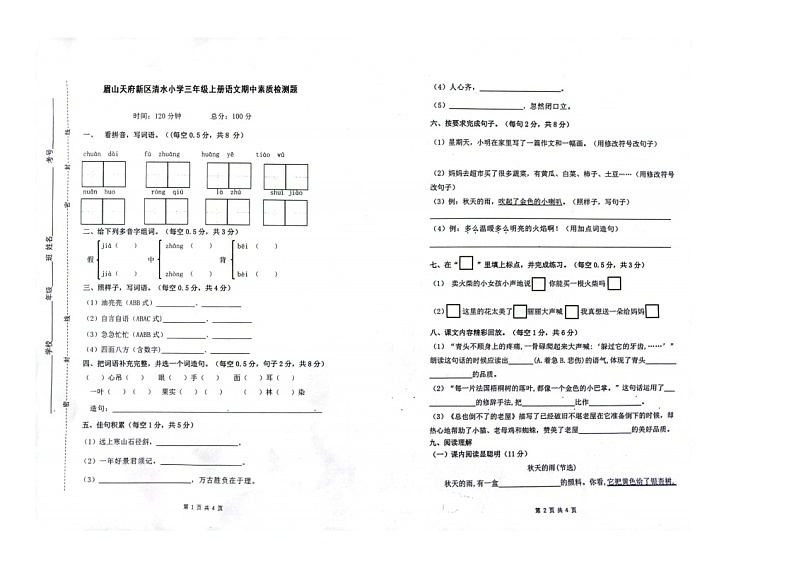 眉山天府新区清水小学三年级上册语文期中素质检测题
时间：120分钟 总分：100分
一、 看拼音，写词语。（(每空0.5分，共8 分）
chuān dài fú zhuāng huāng yě tiào wǔ
nuǎn huo róng qiú là zhú shuǐ jiǎo
二、给下列多音字组词。（每空0.5分，共3分）
假 jiǎ（ ） 中 zhōng（ ） 背 bēi（ ）
jià（ ） zhòng（ ） bèi（ ）
三、照样子，写词语。（每空0.5分，共4分）
（1）油亮亮（ABB式）__________、__________
（2）自言自语（ABAC式）__________、__________
（3）急急忙忙（AABB式）__________、__________
（4）四面八方（含数字）__________、__________
四、把词语补充完整，并选一个词造句。（每空0.5分，句子2分，共8分）
（ ）心吊（ ） 眼（ ）手（ ） 面（ ）耳（ ）
一叶（ ）（ ） 果实（ ）（ ） （ ）林（ ）染
造句：____________________。
五、佳句积累（每空1分，共5分）
（1）远上寒山石径斜，____________________。
（2）一年好景君须记，____________________。
（3）____________________，万古胜负在于理。
第 1 页 共 4 页
学校__________年级__________班 姓名__________ 考号__________
密 封 线 密 封 线
（4）人心齐，____________________。
（5）____________________，忽然闭口立。
六、按要求完成句子。（每句2分，共8分）
（1）星期天，小明在家里写了一篇作文和一幅画。（用修改符号改句子）
（2）妈妈去超市买了很多蔬菜，有黄瓜、白菜、柿子、土豆……（用修改符号
改句子）
（3）例：秋天的雨，吹起了金色的小喇叭。（照样子，写句子）
（4）例：多么温暖多么明亮的火焰啊！（用加点词造句）
七、在“□”里填上标点，并完成练习。（每空0.5分，共3分）
（1） 卖火柴的小女孩小声地说□你能买一根火柴吗□
（2）□这里的花太美了□丽丽大声喊□我真想送一朵给妈妈□
八、课文内容精彩回放。（每空1分，共6分）
（1）“青头不顺身上的疼痛,一骨碌爬起来大声喊:‘躲过它的牙齿,……’”
朗读这句话的时候应读出______(A.着急 B.悲伤)的语气,体现了青头________
__________的品质。
（2）“每一片法国梧桐树的落叶,都像一个金色的小巴掌。”这句话运用了___
__________的修辞手法,把__________比作__________。
（3）《总也倒不了的老屋》描写了已经破旧不堪老屋在它准备倒下的时候，却
热心地帮助了小猫、老母鸡和蜘蛛，赞美了老屋__________的美好品质。
九、阅读理解
（一）课内阅读显聪明（11分）
秋天的雨(节选)
秋天的雨,有一盒__________的颜料。你看,它把黄色给了银杏树,
第 2 页 共 4 页